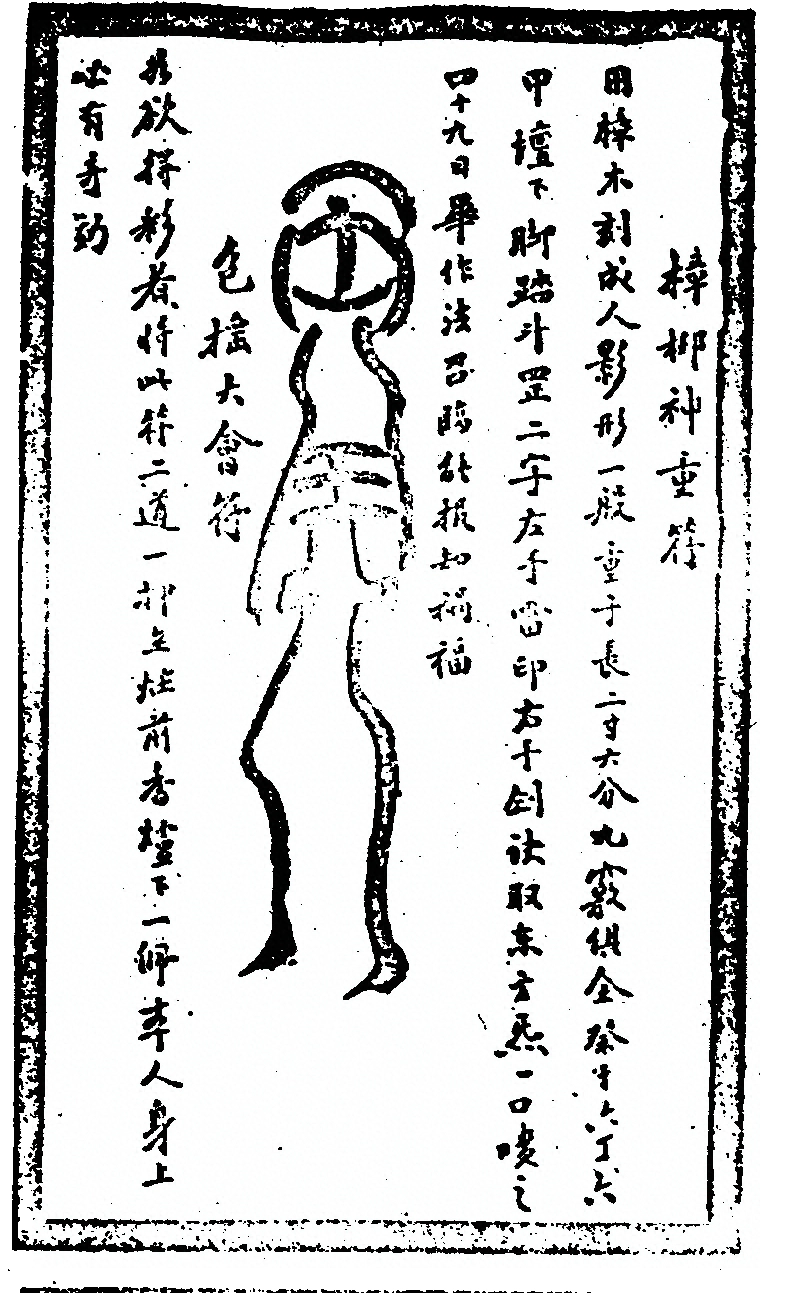 樟柳神童符
用樟木刻成人影形一般童子長二寸六分九竅俱全祭于六丁六
甲壇下脚踏斗罡二字左手雷印右手劍訣取東方炁一口噯之
四十九日畢作法召臨能报知禍福
色摇大會符
欲得移煮将此符二道一部立灶前香爐下一佩本人身上
必有奇効